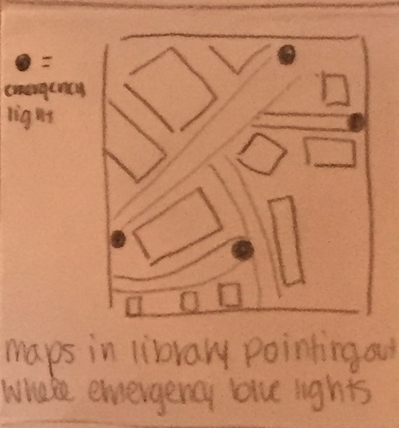 ● =
emergency
light
maps in library pointing out
where emergency blue lights